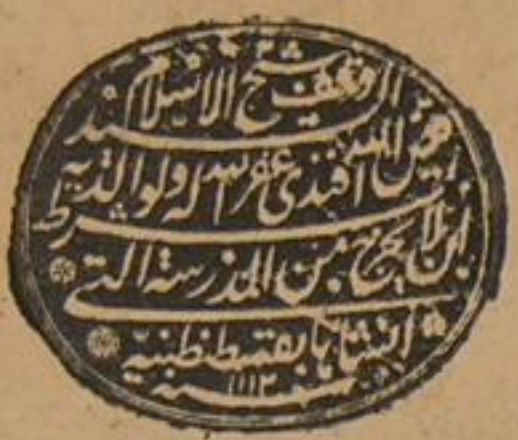 وقف شيخ الاسلام السيد
فيض الله افندى غفر الله له ولوالديه
بشرط ان لا يخرج من المدرسة التى
انشاها بقسطنطنية
سنة ١١١٢